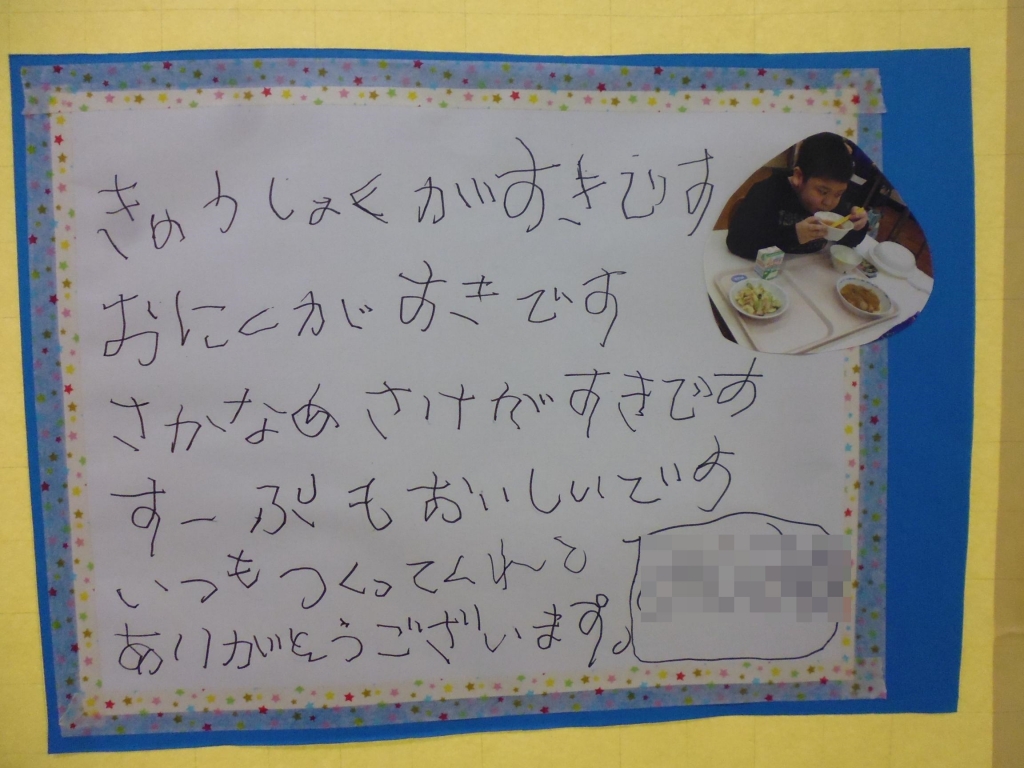 きゅうしょくがすきです
おにくがすきです
さかなのさけがすきです
すーぷもおいしいです
いつもつくってくれて
ありがとうございます。